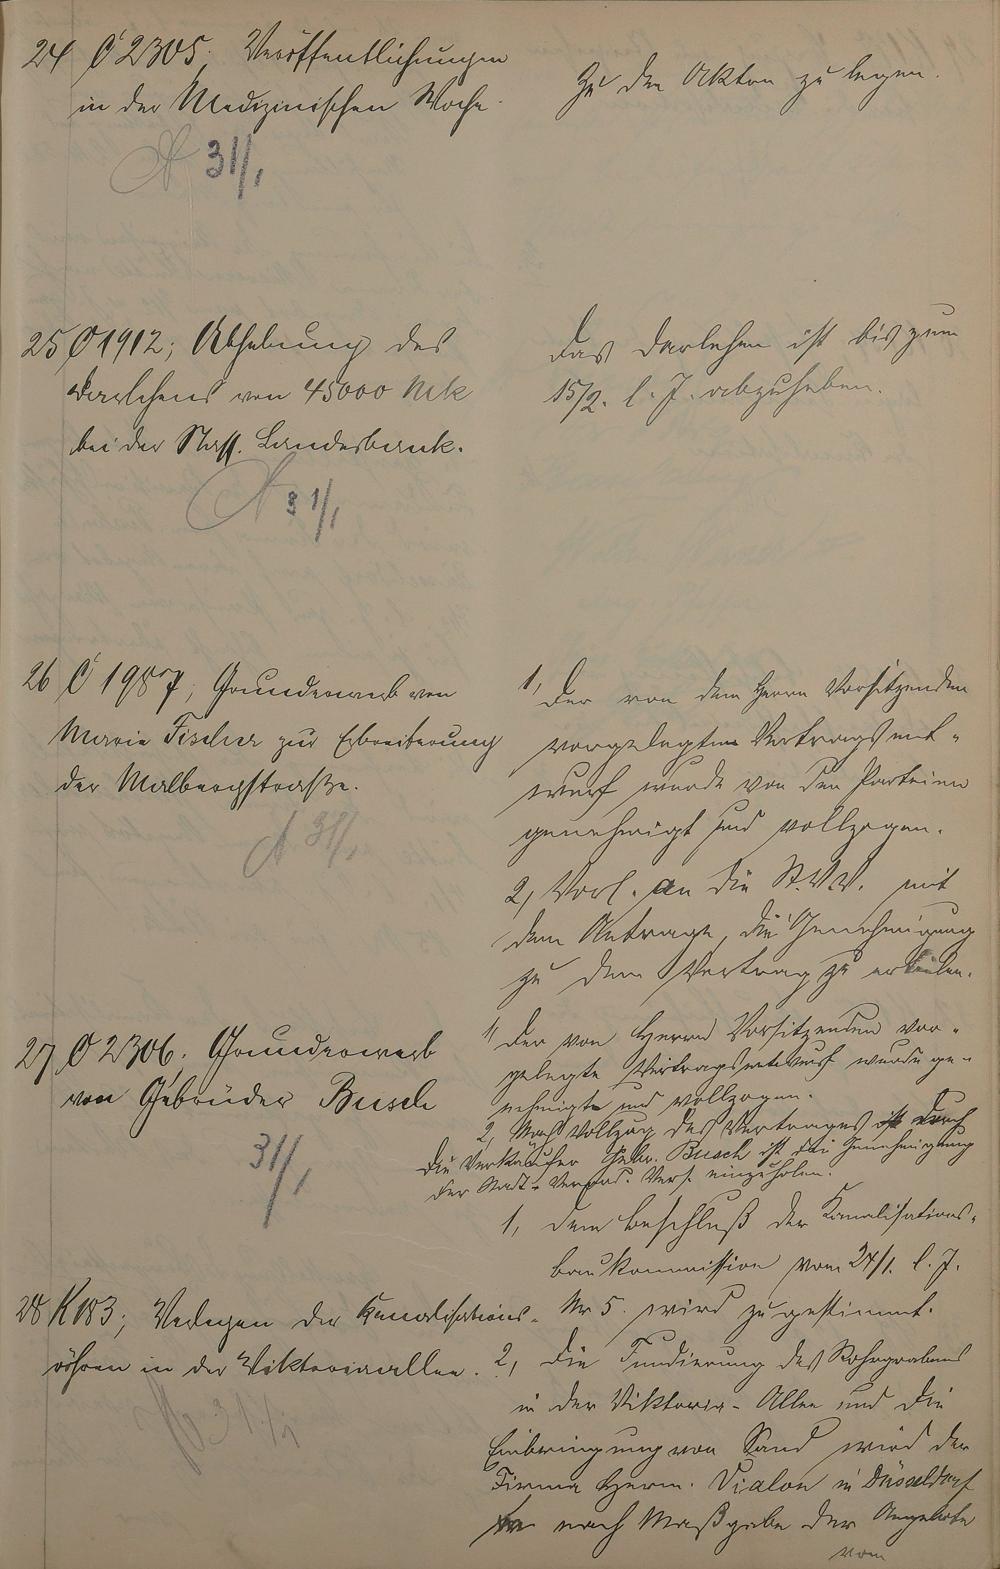 24 C 2305. Veröffentlichungen
in der Medizinischen Woche.
31/1
Zu den Akten zu legen.
25 C 1912; Abhebung des
Darlehens von 45000 Mk
bei der Nass. Landesbank.
31/1
Das Darlehen ist bis zum
15/2. l. J. abzuheben.
26 C 1987; Grunderwerb von
Marie Fischer zur Erbreiterung
der Malbergstraße.
31/1
1, Der von dem Herrn Vorsitzenden
vorgelegte Vertragsent-
wurf wurde von den Parteien
genehmigt und vollzogen.
2, Vorl. an die St.V.V. mit
dem Antrage, die Genehmigung
zu dem Vertrag zu erteilen.
27 C 2306. Grunderwerb
von Gebrüder Busch
31/1
1, Der von Herrn Vorsitzenden vor-
gelegte Vertragsentwurf wurde ge-
nehmigt und vollzogen.
2, Nach Vollzug des Vertrages ist durch
die Verkäufer Gebr. Busch ist die Genehmigung
der Stadt-Verord. Vers. einzuholen.
28 K 183; Verlegen der Kanalisations-
röhren in der Viktoriaallee.
31/1
1, Dem Beschluß der Kanalisations-
baukommission vom 24/1. l. J.
Nr 5. wird zugestimmt.
2, Die Fundierung des Rohrgrabens
in der Viktoria-Allee und die
Einbringung von Sand wird der
Firma Herm. Vialon in Düsseldorf
nach Maßgabe der Angebote
vom